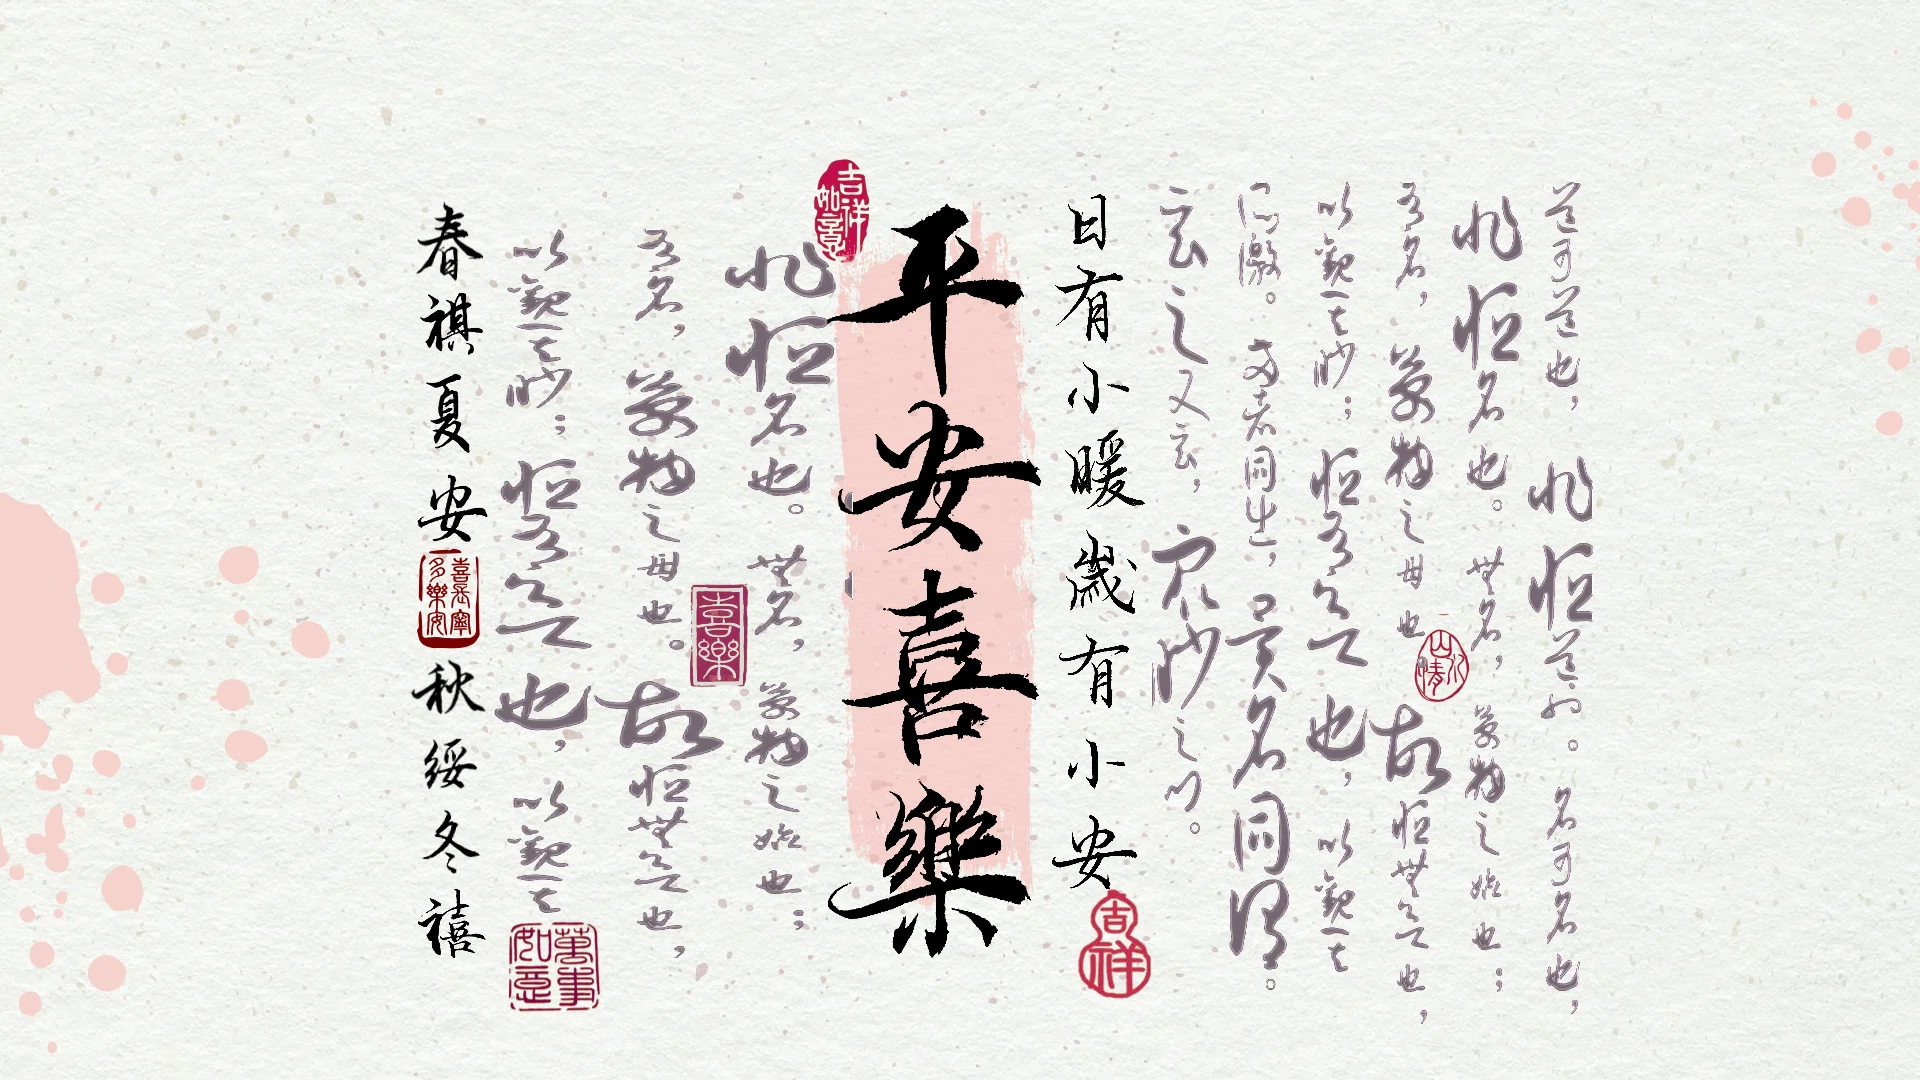 道可道也，非恒道也。名可名也，
非恒名也。無名，萬物之始也；
山水情
有名，萬物之母也。故恒無欲也，
以觀其眇；恒有欲也，以觀其
所噭。两者同出，異名同謂。
玄之又玄，衆眇之門。
日有小暖歲有小安
吉祥
平安喜樂
吉祥如意
非恒名也。無名，萬物之始也；
喜樂
有名，萬物之母也。故恒無欲也，
以觀其眇；恒有欲也，以觀其
萬事如意
春祺夏安
喜長寧多樂安
秋綏冬禧